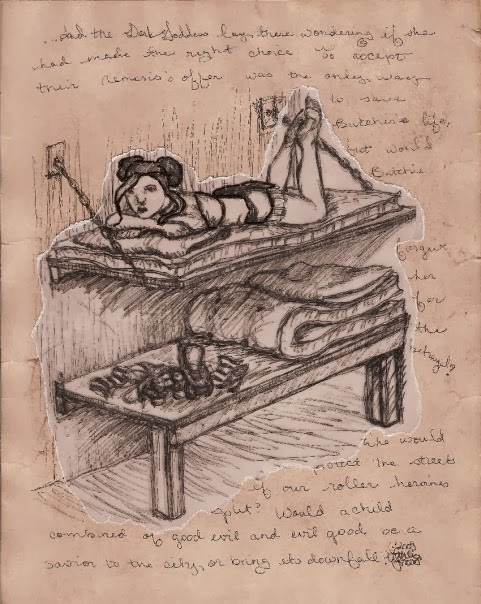 ...And the Dark Goddess lay there wondering if she
had made the right choice to accept
their nemesis's offer was the only way
to save
Butchies life,
but would
Butchie
forgive
her
for
the
betrayal?
Who would
protect the streets
if our roller heroines
split? Would a child
combined of good evil and evil good be a
savior to the city, or bring its downfall?